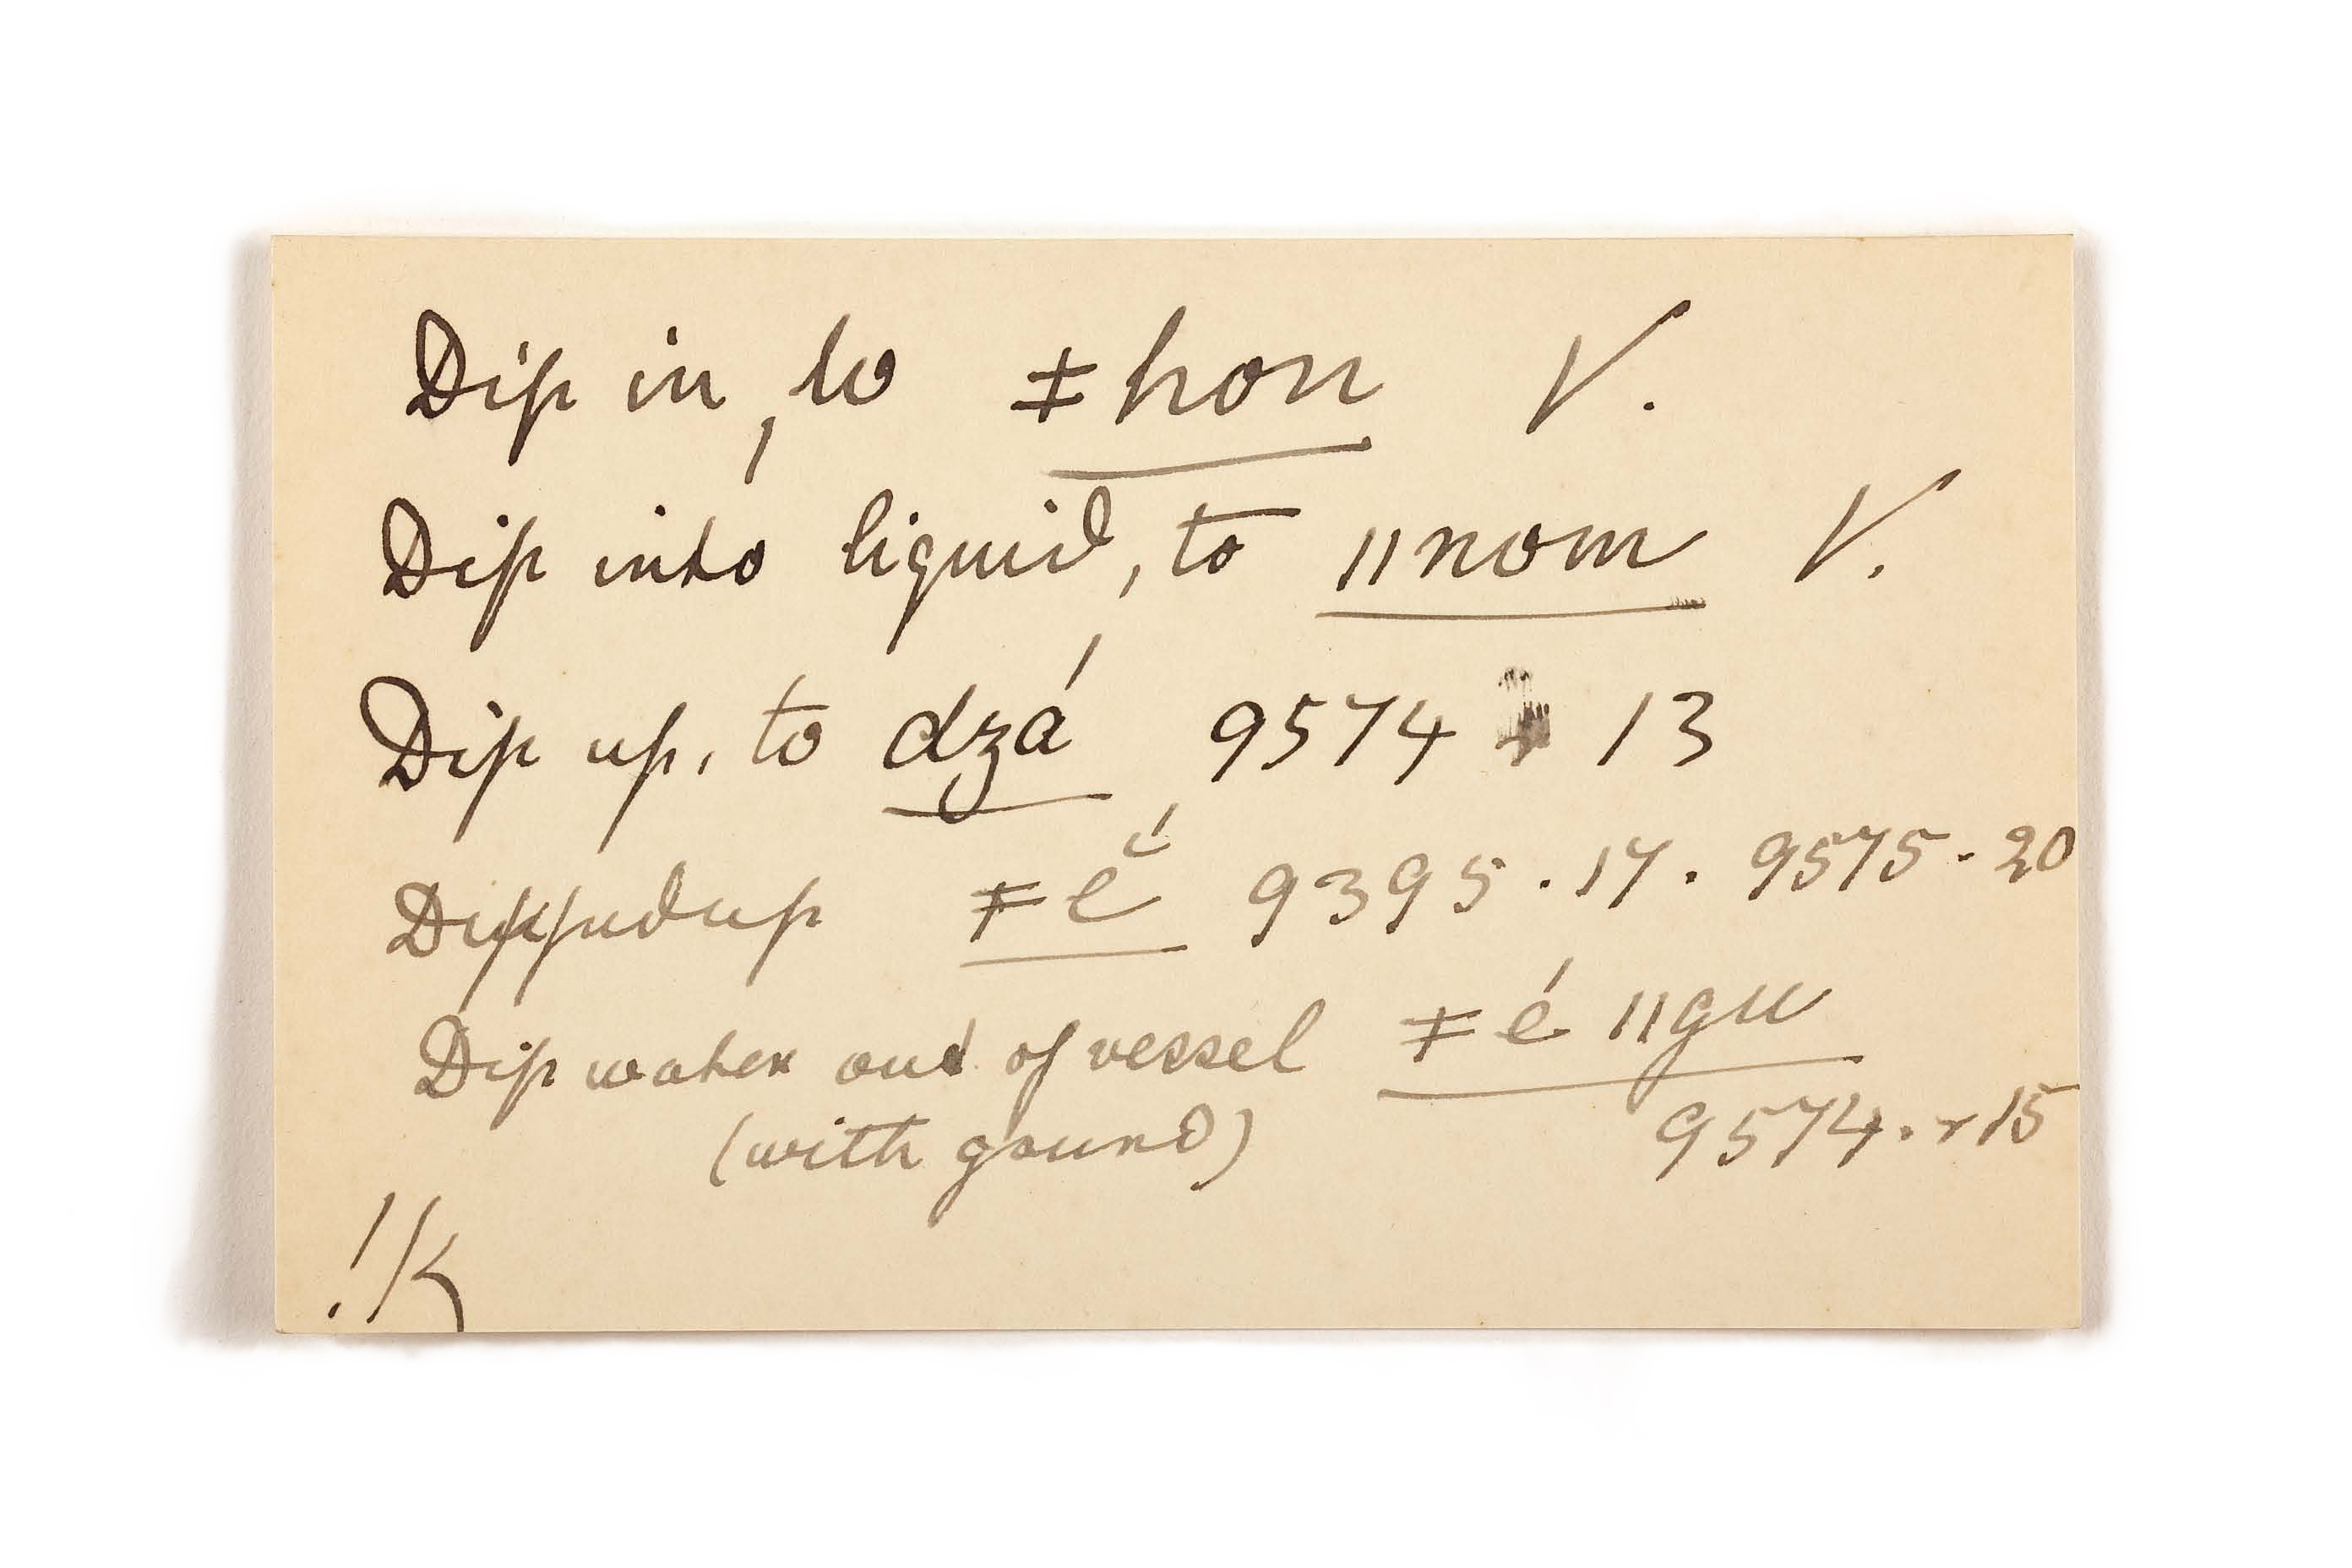 Dip in, to ǂhon V.
Dip into liquid, to ǁnom V.
Dip up, to dzá 9574 13
Dipped up ǂĕ́ 9395 . 17 . 9575 . 20
Dip water out of vessel ǂé ǁgu
(with gourd) 9574 . r 15
!K